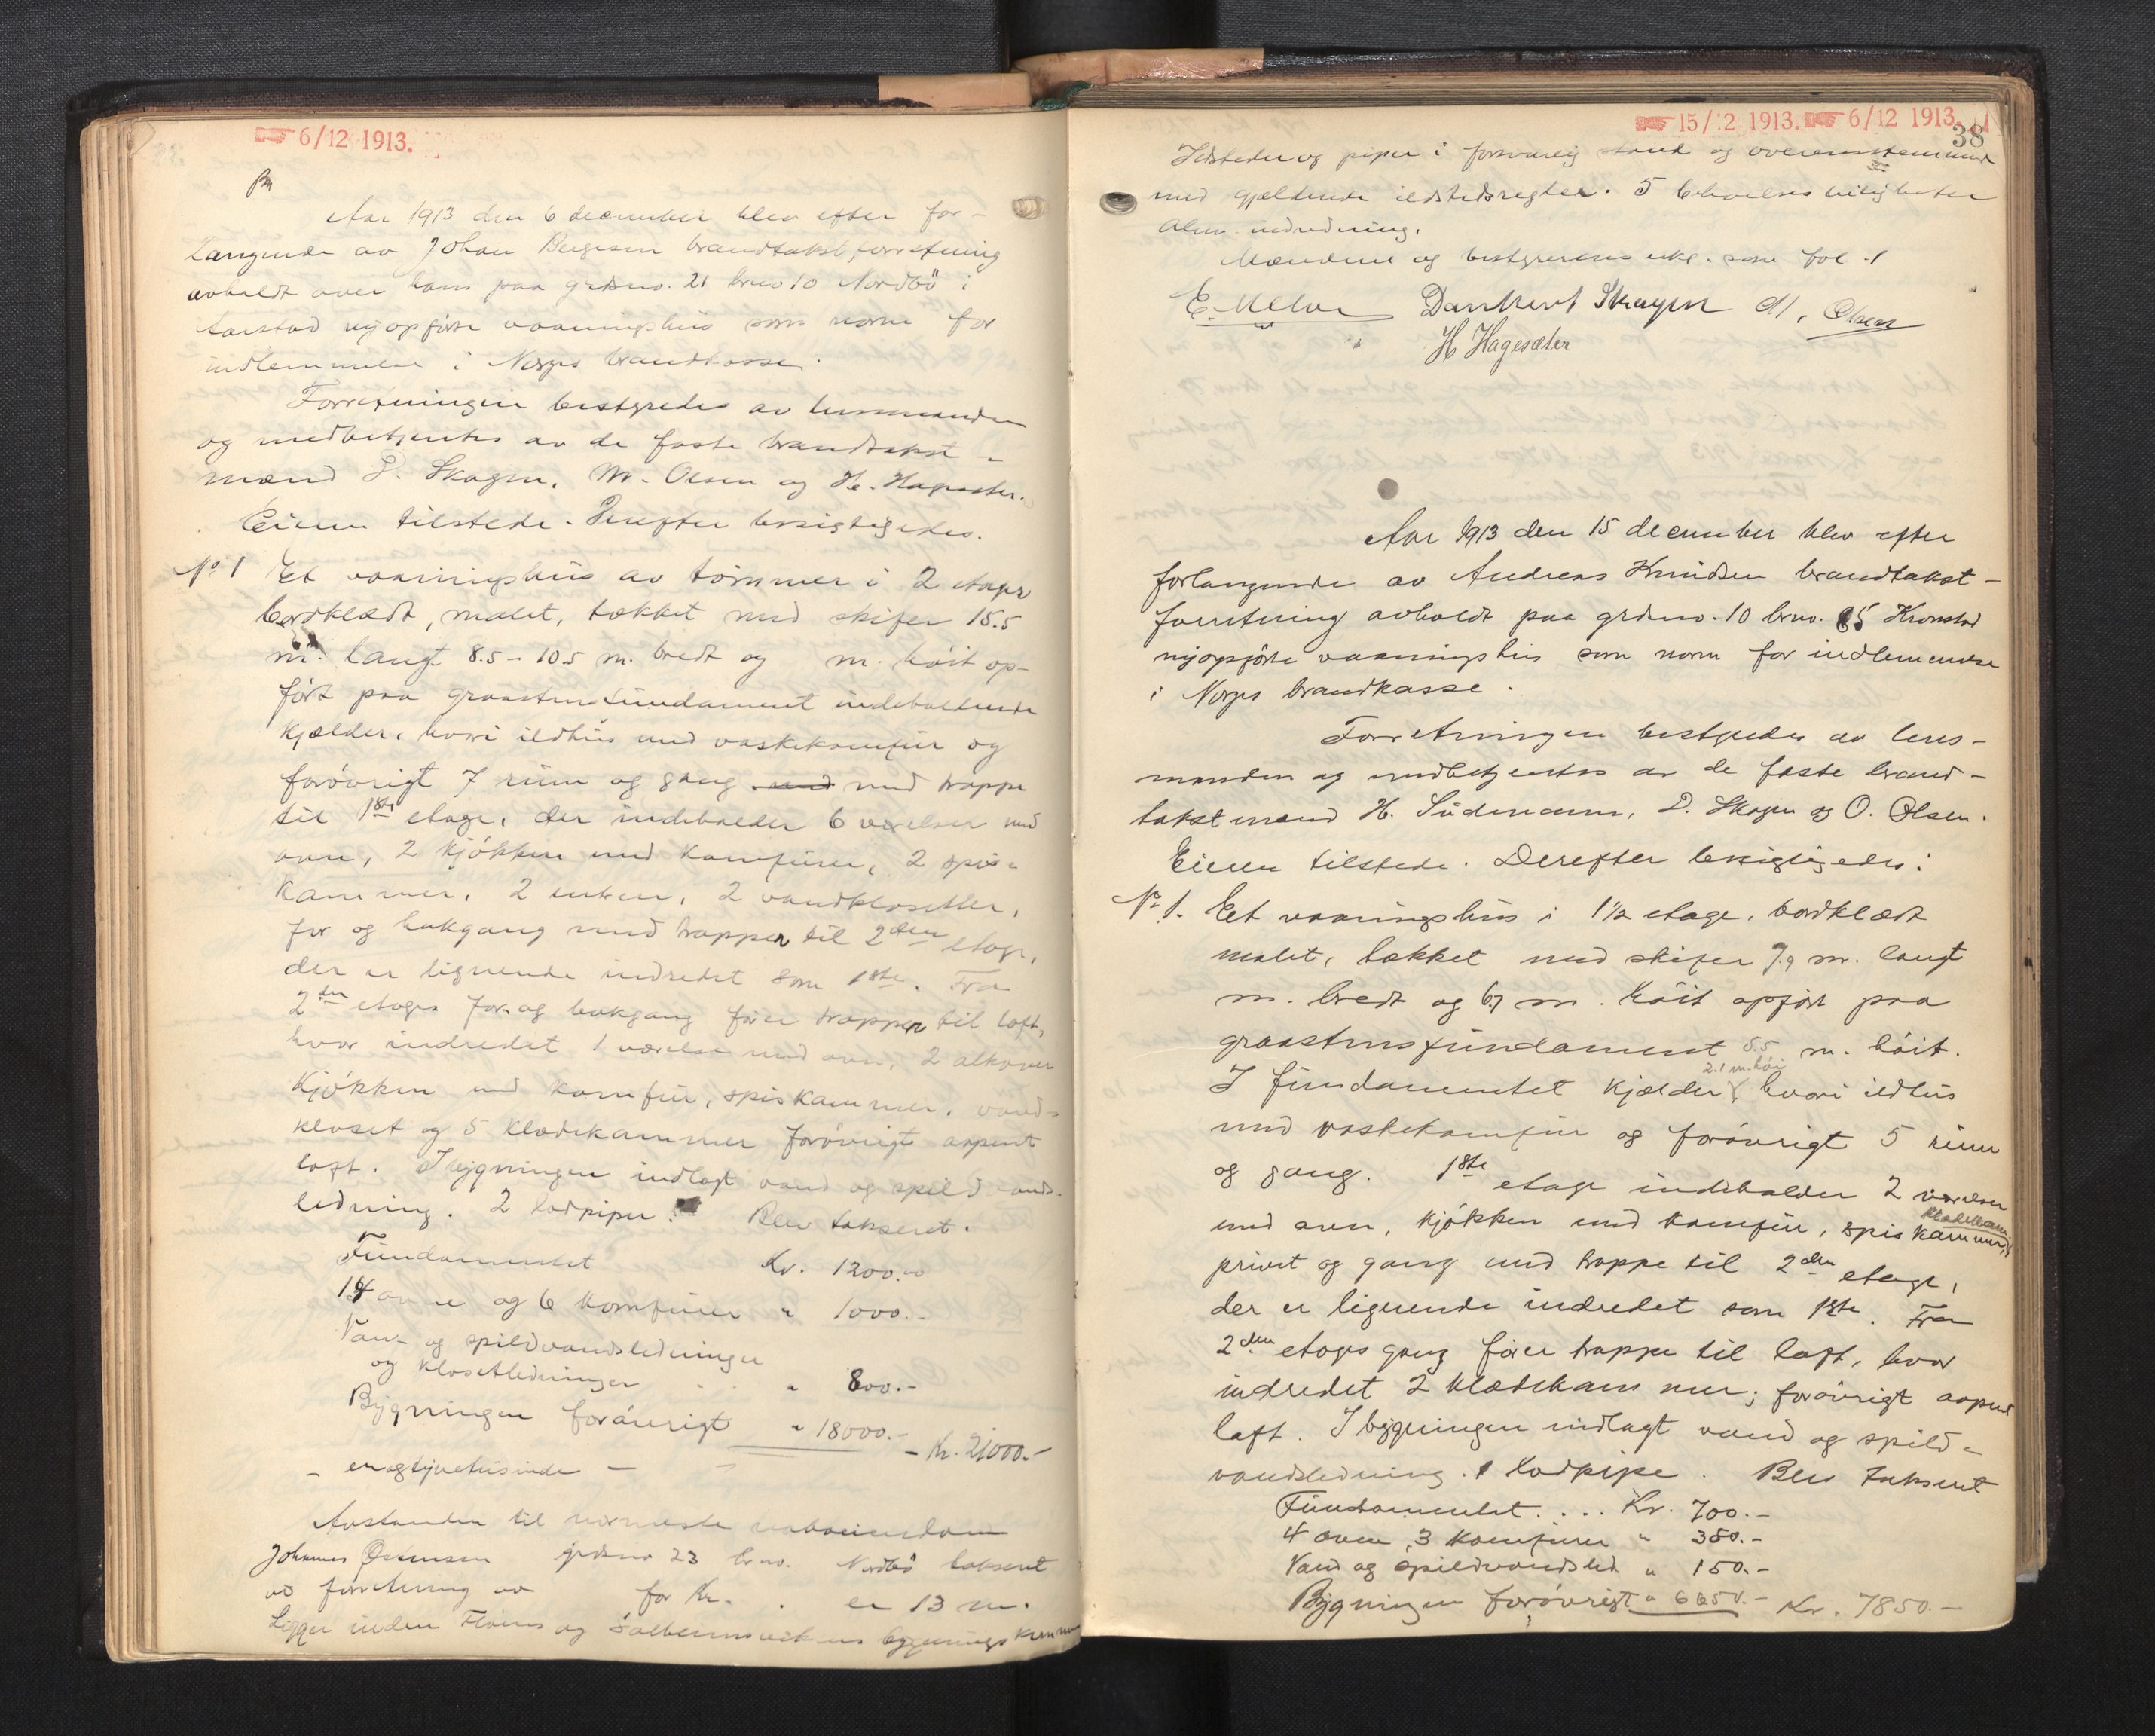 6/12 1913.
Aar 1913 den 6 december blev efter for-
langende av Johan Bergesen brandtakstforretning
avholdt over hans paa grdsno. 21 brno 10 Nordbö i
Aarstad nyopförte vaaningshus som norm for
indlemmelse i Norges brandkasse.
Forretningen bestyredes av lensmanden
og medbetjentes av de faste brandtakst-
mænd D. Skagen, M. Olsen og H. Hagesæter.
Eieren tilstede. Derefter besigtigedes.
No 1 Et vaaningshus av tömmer i 2 etager
bordklædt, malet, tækket med skifer 15.5
m. langt 8.5 - 10.5 m. bredt og m. höit op-
fört paa graastensfundament indeholdende
kjælder, hvori ildhus med vaskekomfur og
forövrigt 7 rum og gang med med trappe
til 1ste etage, der indeholder 6 værelser med
ovn, 2 kjökken med komfurer, 2 spis-
kammer, 2 entreer, 2 vandklosetter,
for og bakgang med trapper til 2den etage,
der er lignende indredet som 1ste. Fra
2den etages for og bakgang förer trapper til loft,
hvor indredet 1 værelse med ovn, 2 alkover
kjökken med komfur, spiskammer, vand-
kloset og 5 klædekammer forövrigt aapent
loft. I bygningen indlagt vand og spildvands-
ledning. 2 lodpiper. Blev takseret.
Fundamentet Kr. 1200.-
14 ovne og 6 komfurer " 1000.-
Van- og spildvandsledninger
og klosetledninger " 800.-
Bygningen forövrigt " 18000.-
- Kr. 21000.-
- enogtyvetusinde -
Avstanden til nærmeste naboeiendom
Johannes Östensen grdsno 23 brno. Nordbö takseret
ved forretning av for Kr. . er 13 m.
Ligger inden Flöens og Solheimsvikens bygningskommune
15/12 1913. 6/12 1913.
38
Ildsteder og piper i forsvarlig stand og overensstemmende
med gjældende ildstedsregler. 5 beboelsesleiligheter
Alm. indredning.
Mændene og bestyrerens erkl. som fol. 1
E. Dankert Skagen M. Olsen
H Hagesæter
Aar 1913 den 15 december blev efter
forlangende av Andreas Knudsen brandtakst-
forretning avholdt paa grdsno. 10 brno. 85 Kronstad
nyopförte vaaningshus som norm for indlemmelse
i Norges brandkasse.
Forretningen bestyredes av lens-
manden og medbetjentes av de faste brand-
takstmænd H. Südmann, D. Skagen og O. Olsen.
Eieren tilstede. Derefter besigtigedes:
No 1. Et vaaningshus i 1½ etage, bordklædt
malet, tækket med skifer 7.9 m. langt
m. bredt og 6.7 m. höit opfört paa
graastensfundament 5.5 m. höit.
2.1 m. höi
I fundamentet kjælder, hvori ildhus
med vaskekomfur og forövrigt 5 rum
og gang. 1ste etage indeholder 2 værelser
med ovn, kjökken med komfur, spiskammer,
klædekam
privet og gang med trappe til 2den etage,
der er lignende indredet som 1ste. Fra
2den etages gang förer trappe til loft, hvor
indredet 2 klædekammer; forövrigt aapent
loft. I bygningen indlagt vand og spild-
vandsledning. 1 lodpipe. Blev takseret
Fundamentet.... Kr. 700.-
4 ovne, 3 komfurer " 350.-
Vand og spildvandsled " 150.-
Bygningen forövrigt " 6650.- Kr. 7850.-